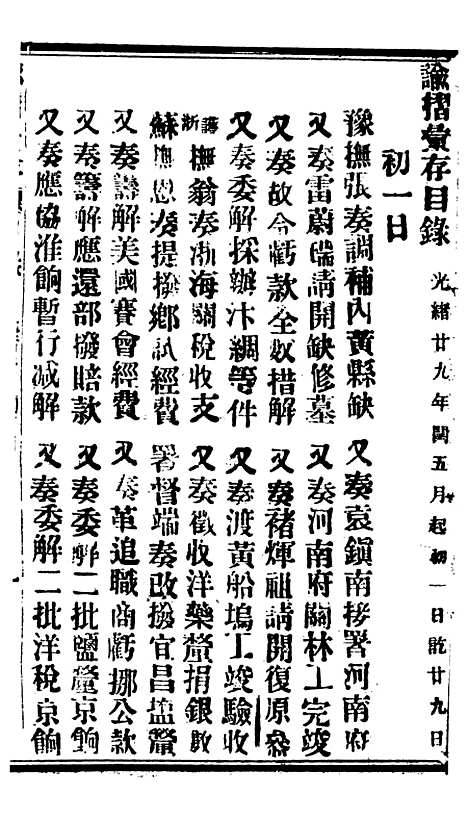 諭摺彙存目錄 光緒廿九年閏五月起初一日訖廿九日
初一日
豫撫張奏調補內黃縣缺 又奏袁鎮南接署河南府
又奏雷蔚瑞請開缺修墓 又奏河南府關林工完竣
又奏故令虧款全數措解 又奏褚煇祖請開復原參
又奏委解採辦汴綢等件 又奏渡黃船塢工竣驗收
護浙撫翁奏浙海關稅收支 又奏徵收洋藥釐捐銀數
蘇撫恩奏提撥鄉試經費 署督端奏改撥宜昌鹽釐
又奏籌解美國賽會經費 又奏革追職商虧挪公款
又奏籌解應還部撥賠款 又奏委解二批鹽釐京餉
又奏應協淮餉暫行減解 又奏委解二批洋稅京餉